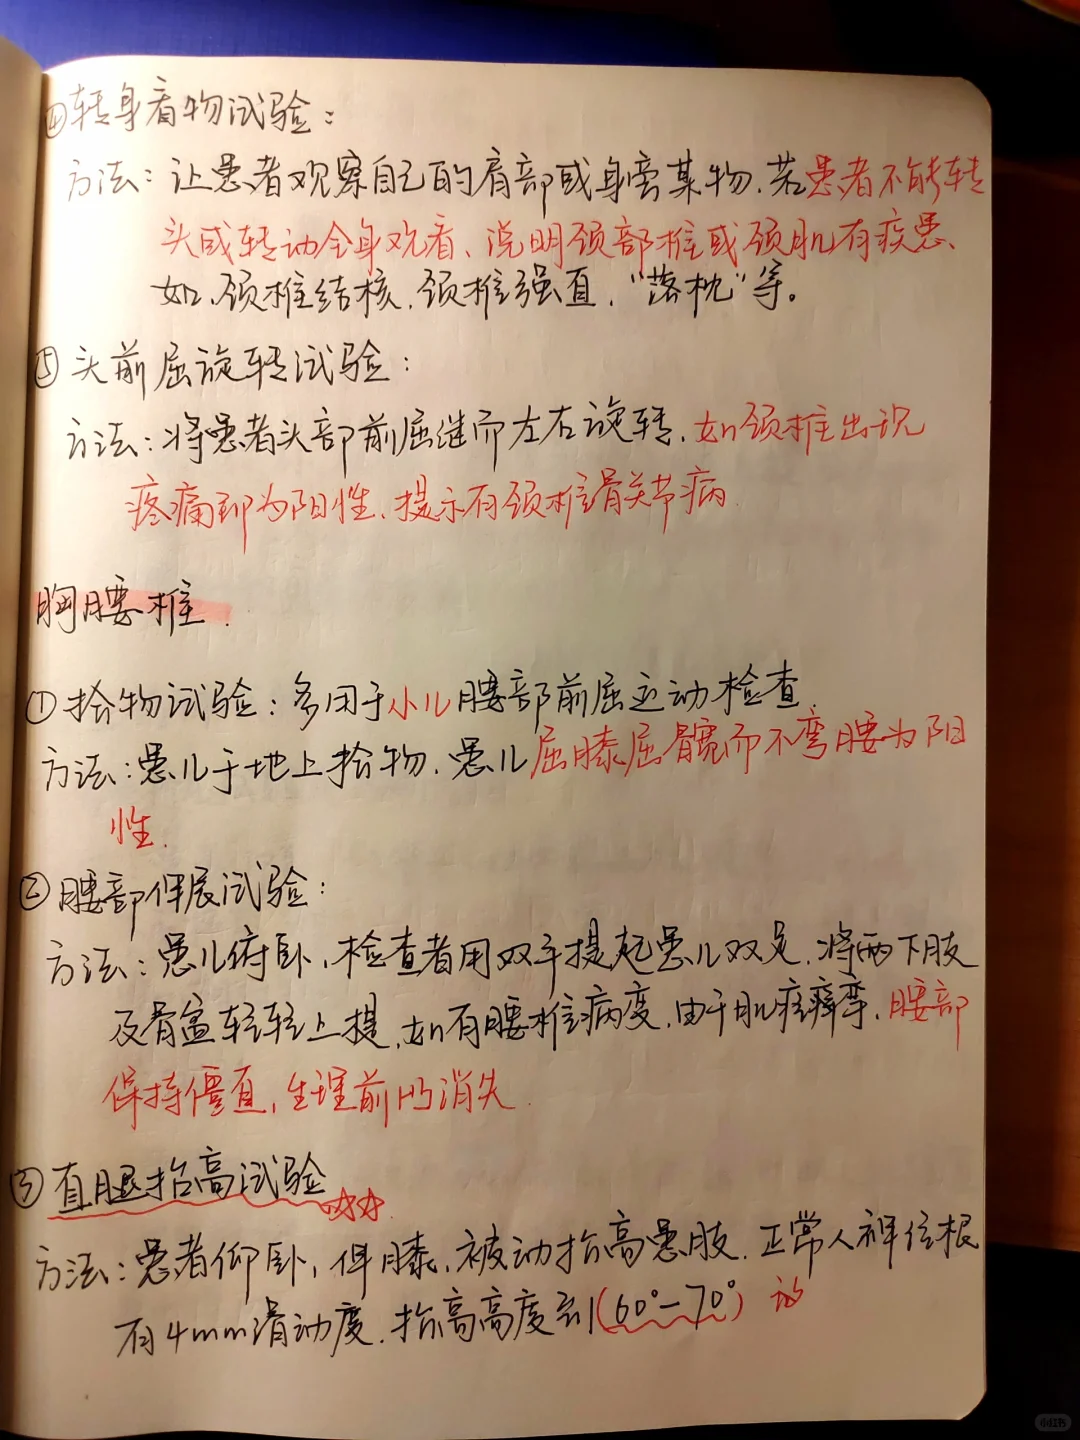 ④转身看物试验：
方法：让患者观察自己的肩部或身旁某物，若患者不能转
头或转动全身观看、说明颈部椎或颈肌有疾患、
如、颈椎结核，颈椎强直，“落枕”等。
⑤头前屈旋转试验：
方法：将患者头部前屈继而左右旋转，如颈椎出现
疼痛即为阳性，提示有颈椎骨关节病
胸腰椎.
①拾物试验：多用于小儿腰部前屈运动检查
方法：患儿于地上拾物，患儿屈膝屈髋而不弯腰为阳
性.
②腰部伸展试验：
方法：患儿俯卧，检查者用双手提起患儿双足，将两下肢
及骨盆轻轻上提，如有腰椎病变，由于肌痉挛，腰部
保持僵直，生理前凸消失.
③直腿抬高试验☆☆
方法：患者仰卧，伸膝，被动抬高患肢，正常人神经根
有4mm滑动度，抬高高度到(60°-70°)
小红书